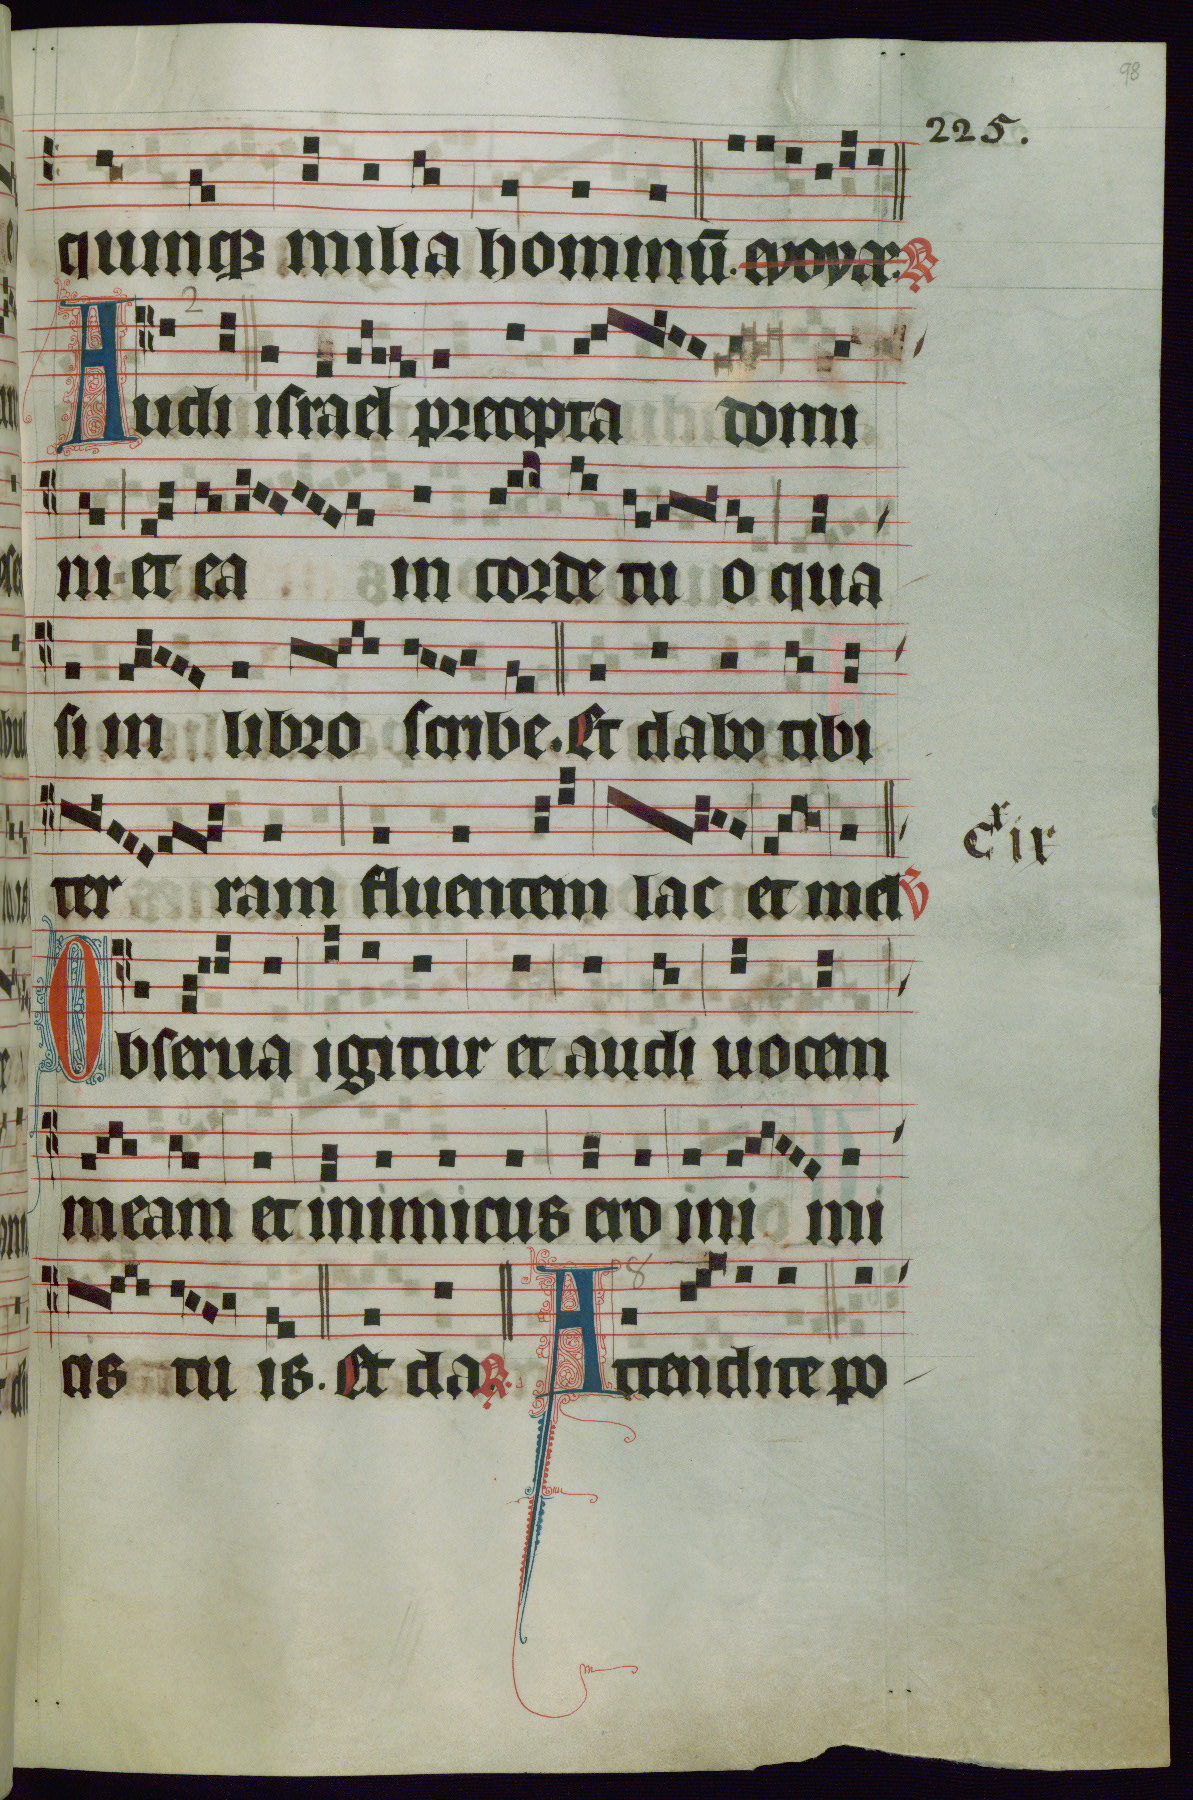 98
225.
quinqꝫ milia hominū. evovae. R
2
Audi israel precepta domi
ni et ea in corde tu o qua
si in libro scribe. Et dabo tibi
ter ram fluentem lac et mel V
Cxix
Obserua igitur et audi uocem
meam et inimicus ero ini mi
cis tu is. Et da R.
8
Attendite po